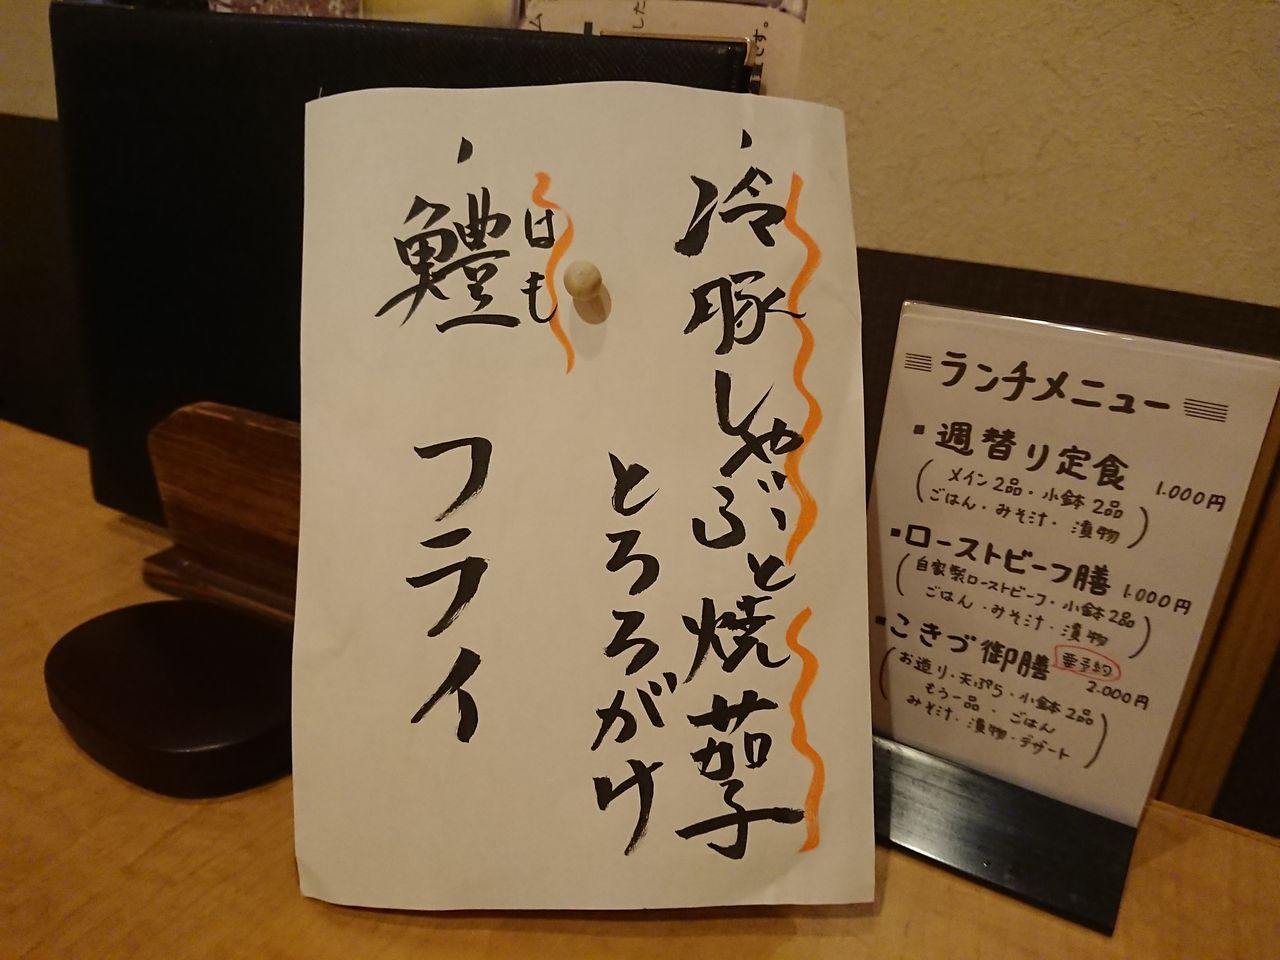 ・冷豚しゃぶと焼茄子
とろろがけ
はも
・鱧 フライ
ランチメニュー
▪週替り定食 1.000円
(メイン2品・小鉢2品
ごはん・みそ汁・漬物)
▪ローストビーフ膳 1.000円
(自家製ローストビーフ・小鉢2品
ごはん・みそ汁・漬物)
▪こきづ御膳 要予約 2.000円
(お造り・天ぷら・小鉢2品
もう一品・ごはん
みそ汁・漬物・デザート)